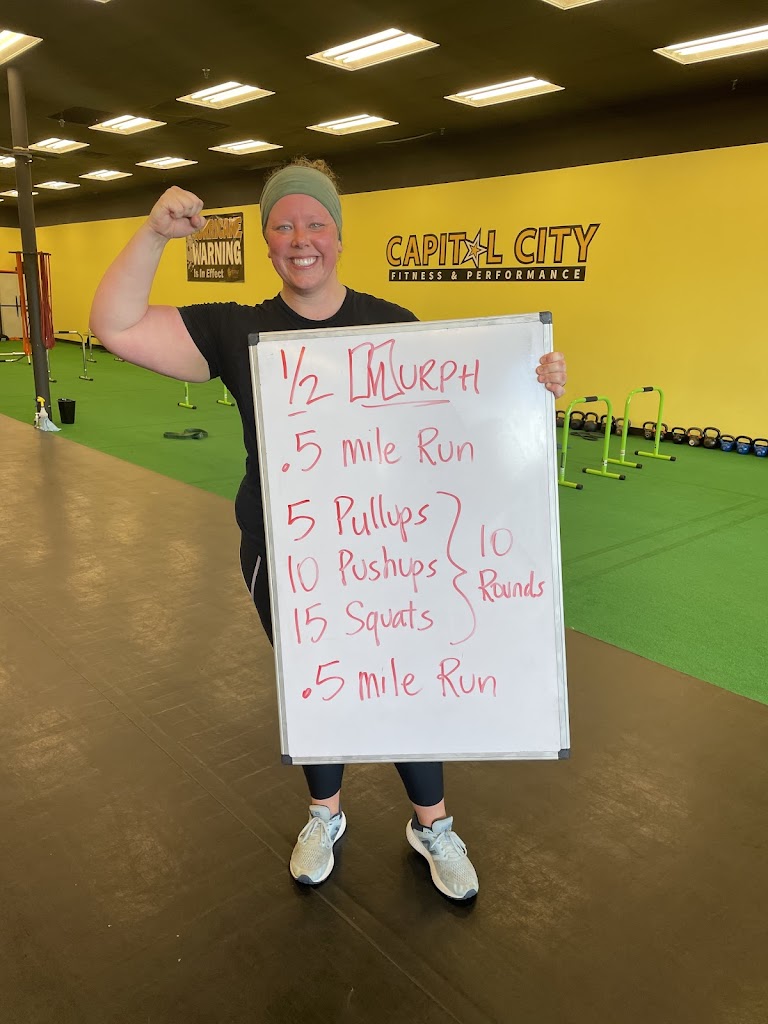 HURRICANE
WARNING
Is In Effect
CAPITAL CITY
FITNESS & PERFORMANCE
1/2 MURPH
.5 mile Run
5 Pullups
10 Pushups
15 Squats
10
Rounds
.5 mile Run